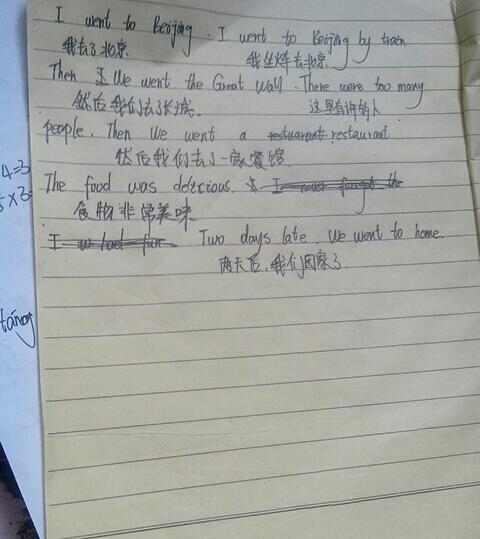 I went to Beijing. I went to Beijing by train
我去了北京. 我坐火车去北京.
Then I We went the Great Wall. There were too many
然后我们去了长城. 这里有许多人
people. Then We went a restuarant restaurant
然后我们去了一家餐馆
The food was delicious. I never forget the
食物非常美味
I had fun Two days late. We went to home.
两天后.我们回家了
4=3
tang